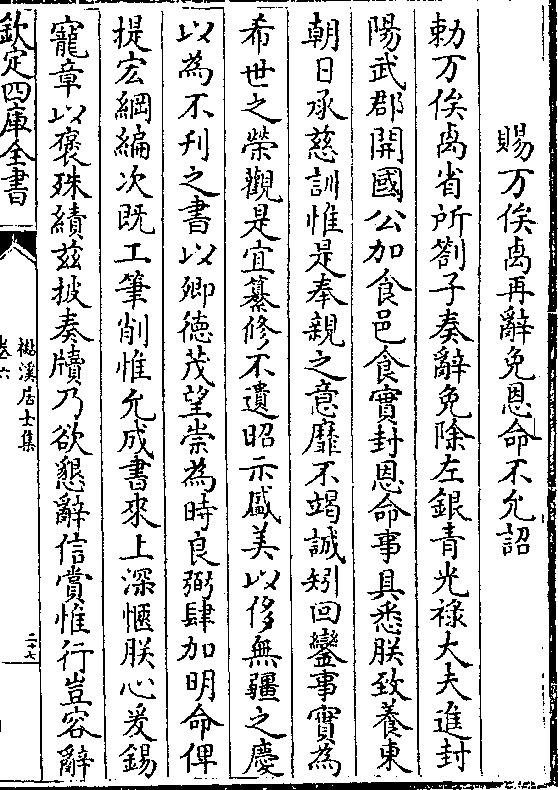 賜万俟卨再辭免恩命不允詔
勅万俟卨省所劄子奏辭免除左銀青光禄大夫進封
陽武郡開國公加食邑食實封恩命事具悉朕致養東
朝日承慈訓惟是奉親之意靡不竭誠矧回鑾事實為
希世之榮觀是宜纂修不遺昭示盛美以侈無疆之慶
以為不刋之書以卿德茂望崇為時良弼肆加明命俾
提宏綱編次既工筆削惟允成書來上深愜朕心爰錫
寵章以褒殊績兹披奏牘乃欲懇辭信賞惟行豈容辭
欽定四庫全書
楳溪居士集
卷六
二十七